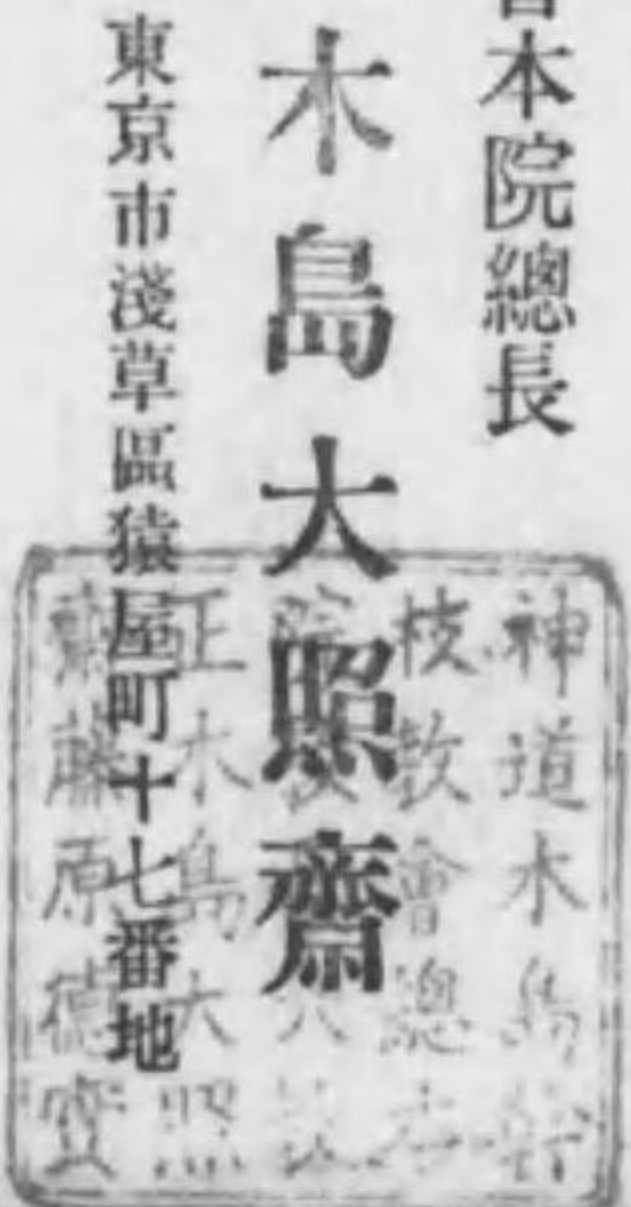 本院總長
木島大照齋
東京市淺草區猿屋町十七番地
神道木島
枝教會總
正木島大照
齋藤原德寶